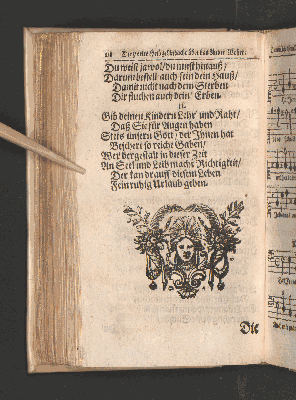 Du weist ja wol/ du must hinauß/
Darum bestell auch fein dein Hauß/
Damit nicht nach dem Sterben
Dir fluchen auch dein' Erben.
11.
Gib deinen Kindern Lehr' und Raht/
Daß Sie für Augen haben
Stets unsern Gott/ der Ihnen hat
Beschert so reiche Gaben/
Wer dergestalt in dieser Zeit
An Seel und Leib macht Richtigkeit/
Der kan drauff diesem Leben
Fein ruhig Urlaub geben.
Die